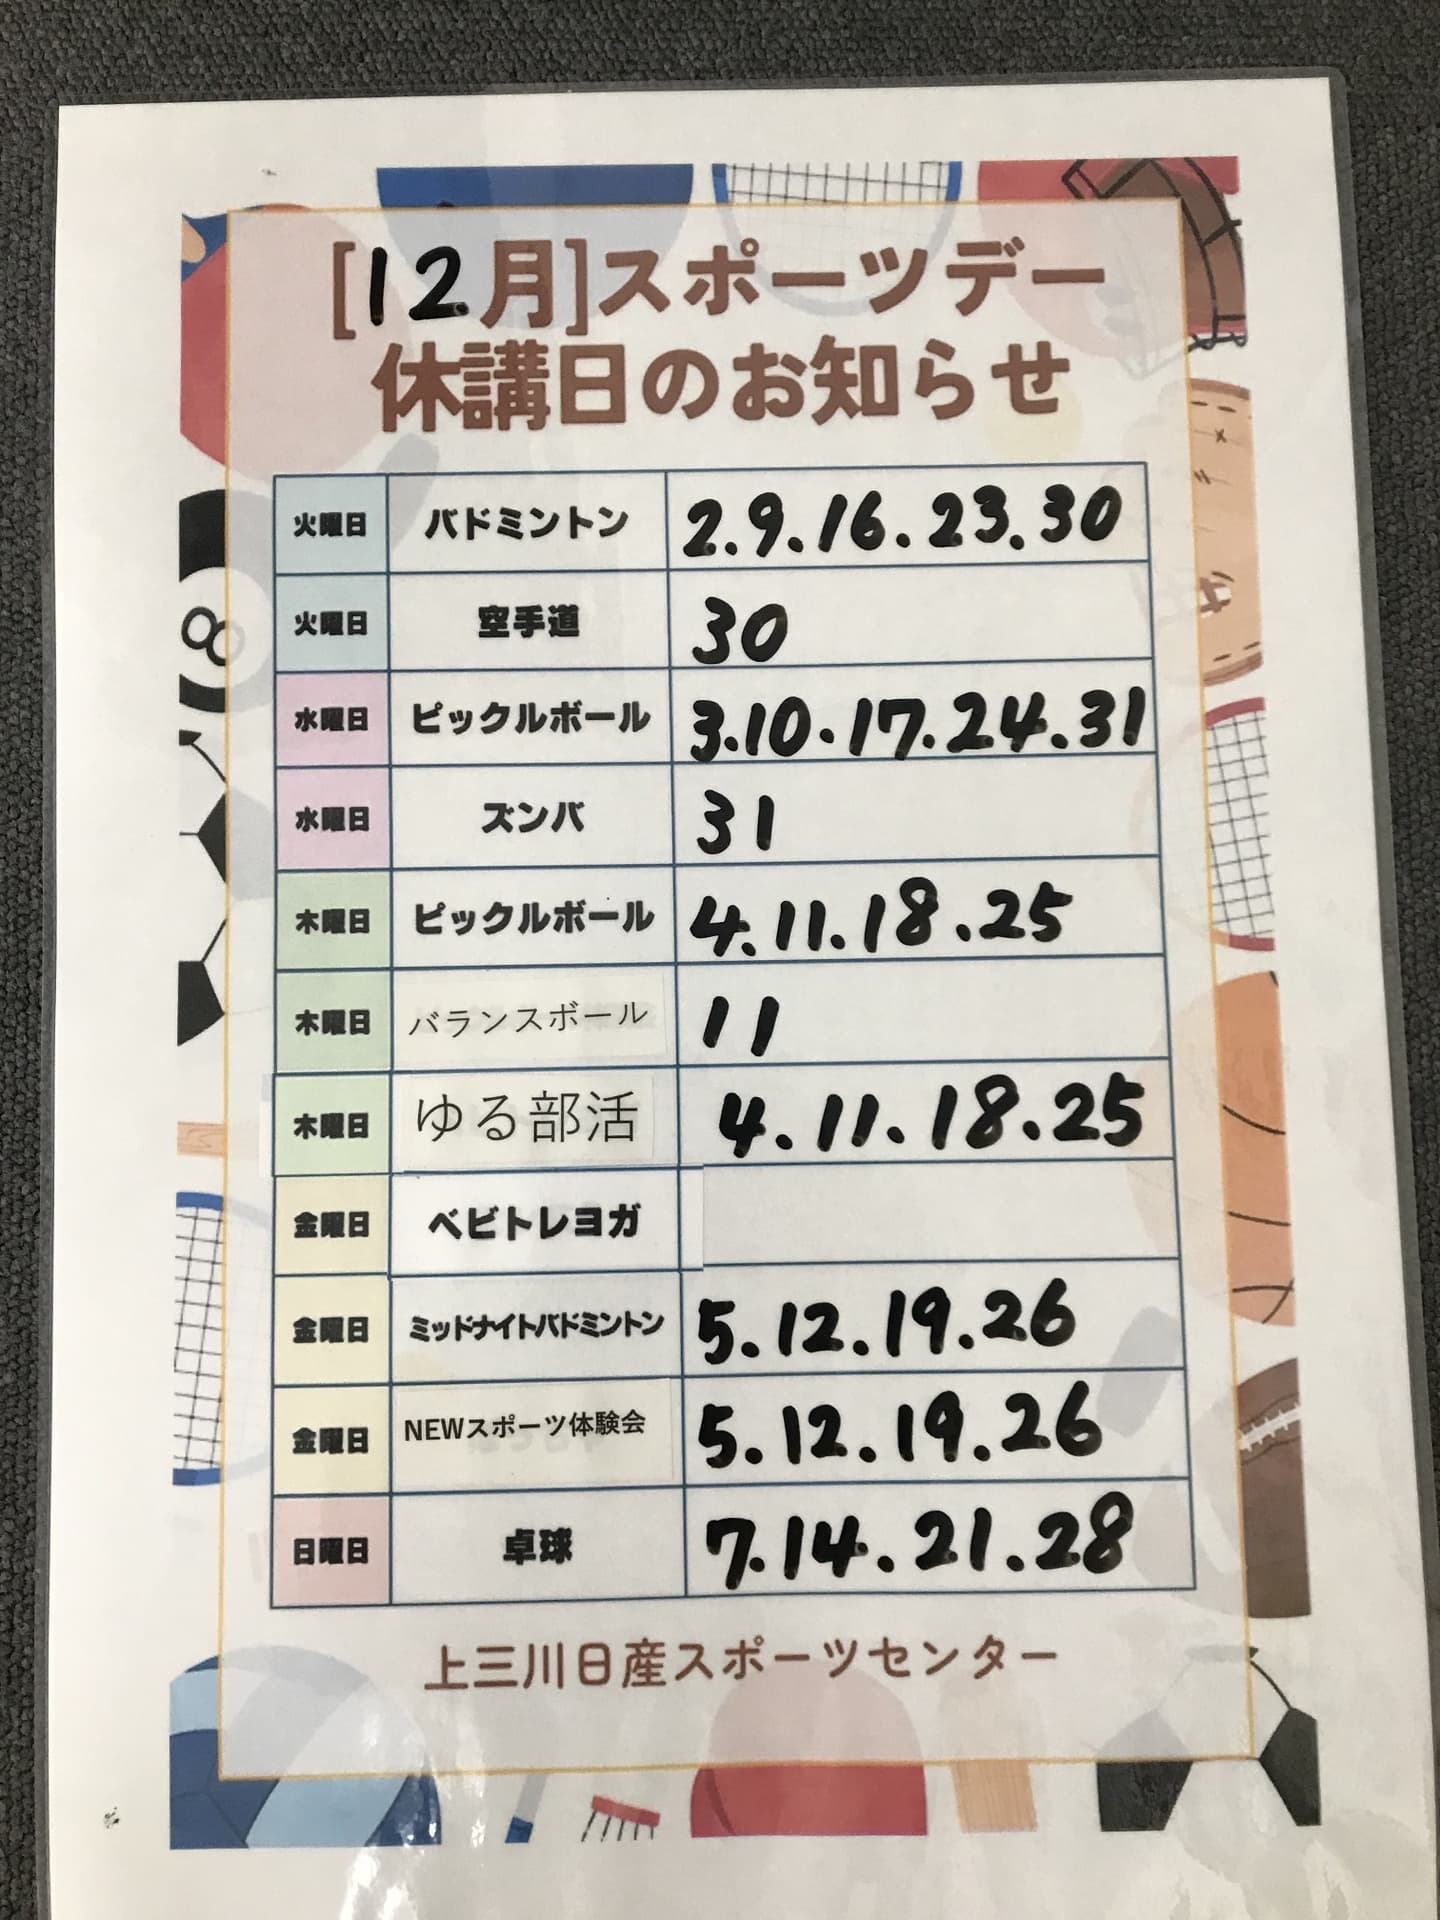 [12月]スポーツデー
休講日のお知らせ
火曜日 バドミントン 2.9.16.23.30
火曜日 空手道 30
水曜日 ピックルボール 3.10.17.24.31
水曜日 ズンバ 31
木曜日 ピックルボール 4.11.18.25
木曜日 バランスボール 11
木曜日 ゆる部活 4.11.18.25
金曜日 ベビトレヨガ
金曜日 ミッドナイトバドミントン 5.12.19.26
金曜日 NEWスポーツ体験会 5.12.19.26
日曜日 卓球 7.14.21.28
上三川日産スポーツセンター
8